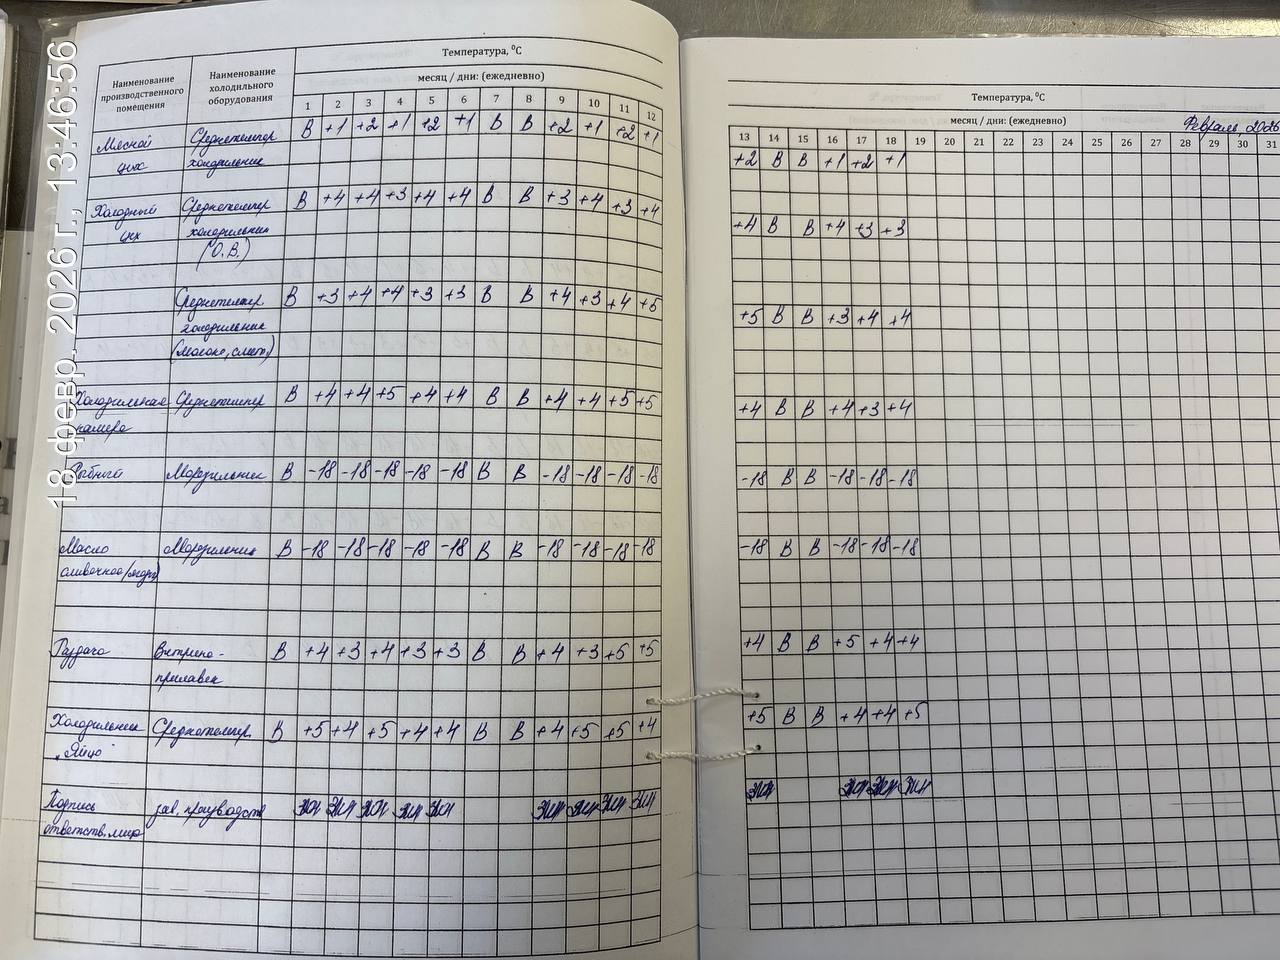 18 февр. 2026 г., 13:46:56
Температура, °С
Наименование производственного помещения
Наименование холодильного оборудования
месяц / дни: (ежедневно)
1 2 3 4 5 6 7 8 9 10 11 12
Мясной Среднетемпер В +1 +2 +1 +2 +1 В В +2 +1 +2 +1
цех холодильник
Холодный Среднетемпер В +4 +4 +3 +4 +4 В В +3 +4 +3 +4
цех холодильник
(О.В.)
Среднетемпер В +3 +4 +4 +3 +3 В В +4 +3 +4 +5
холодильник
(молоко, смет.)
Холодильная Среднетемпер В +4 +4 +5 +4 +4 В В +4 +4 +5 +5
камера
Рыбный Морозильник В -18 -18 -18 -18 -18 В В -18 -18 -18 -18
Масло Морозильник В -18 -18 -18 -18 -18 В В -18 -18 -18 -18
сливочное
Раздача Витрина-
В +4 +3 +4 +3 +3 В В +4 +3 +5 +5
прилавок
Холодильник Среднетемпер. В +5 +4 +5 +4 +4 В В +4 +5 +5 +4
"Яйцо"
Подпись зав. производств
ответств. лица
Температура, °С
месяц / дни: (ежедневно)
Февраль, 2026
13 14 15 16 17 18 19 20 21 22 23 24 25 26 27 28 29 30 31
+2 В В +1 +2 +1
+4 В В +4 +3 +3
+5 В В +3 +4 +4
+4 В В +4 +3 +4
-18 В В -18 -18 -18
-18 В В -18 -18 -18
+4 В В +5 +4 +4
+5 В В +4 +4 +5